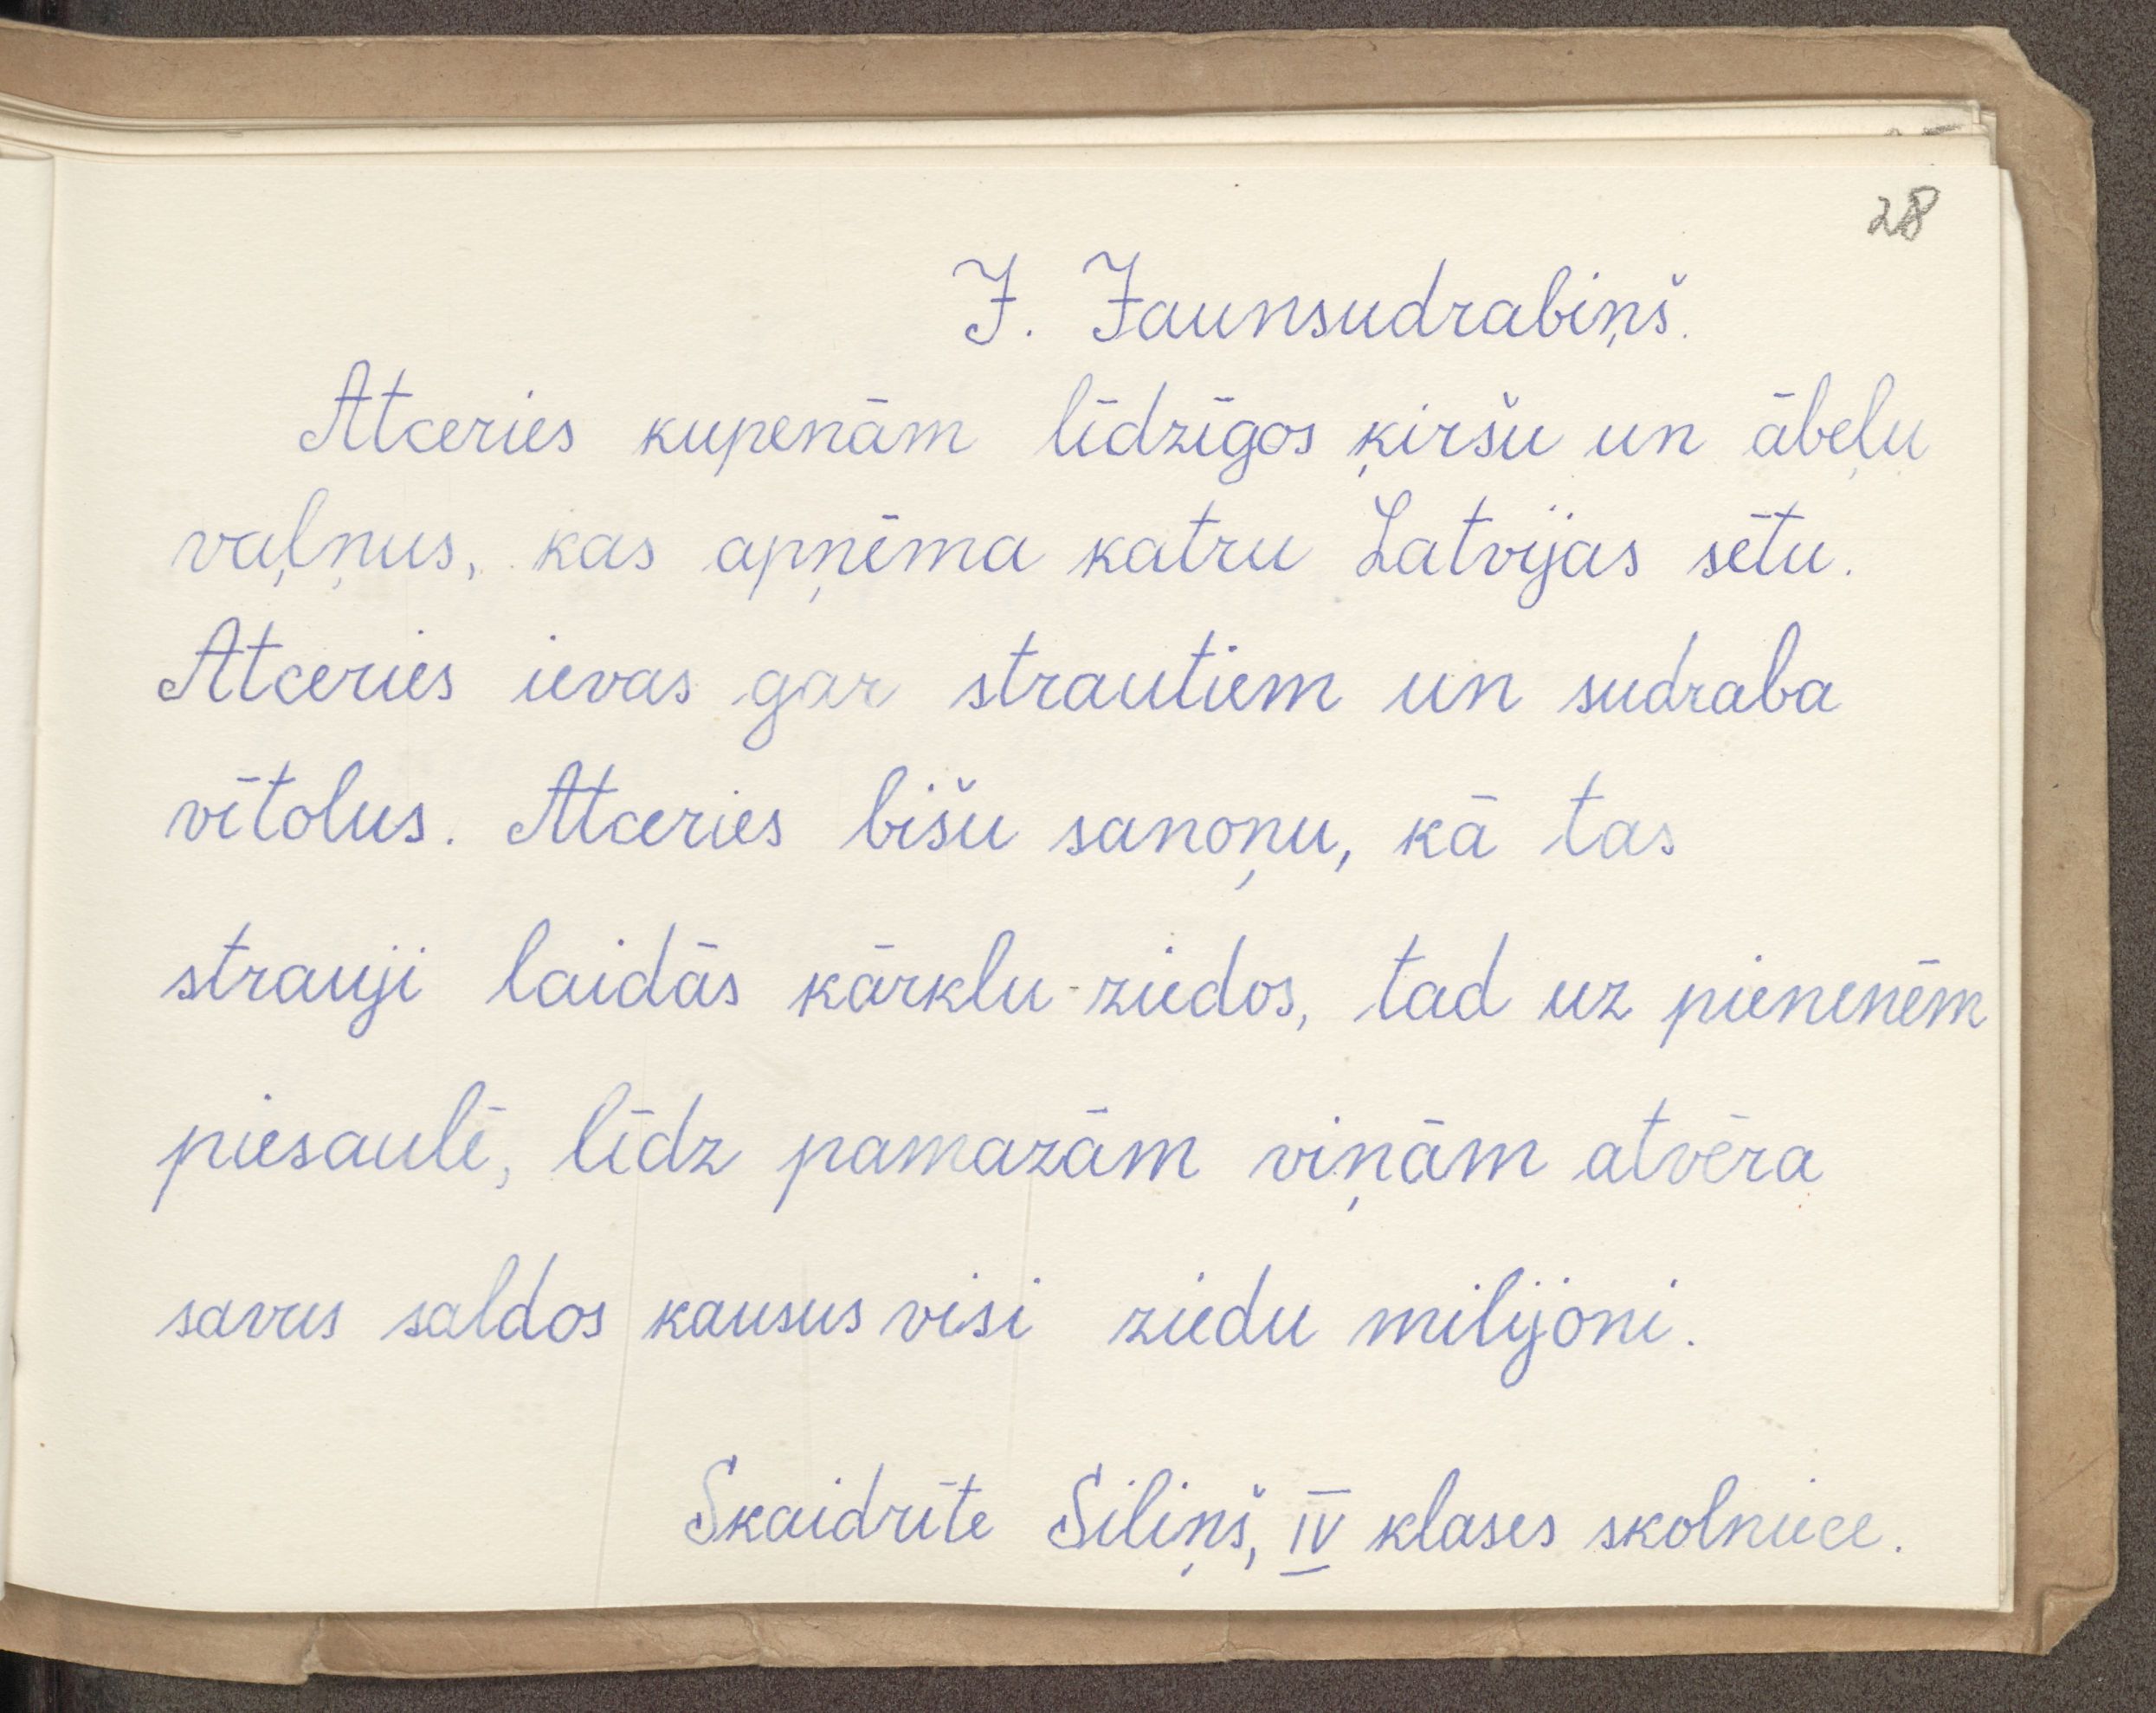 28
J. Jaunsudrabiņš.
Atceries kupenām līdzīgos ķiršu un ābeļu
vaļņus, kas apņēma katru Latvijas sētu.
Atceries ievas gar strautiem un sudraba
vītolus. Atceries bišu sanoņu, kā tas
strauji laidās kārklu-ziedos, tad uz pienenēm
piesaulē, līdz pamazām viņām atvēra
savus saldos kausus visi ziedu milijoni.
Skaidrīte Siliņš, IV klases skolniece.